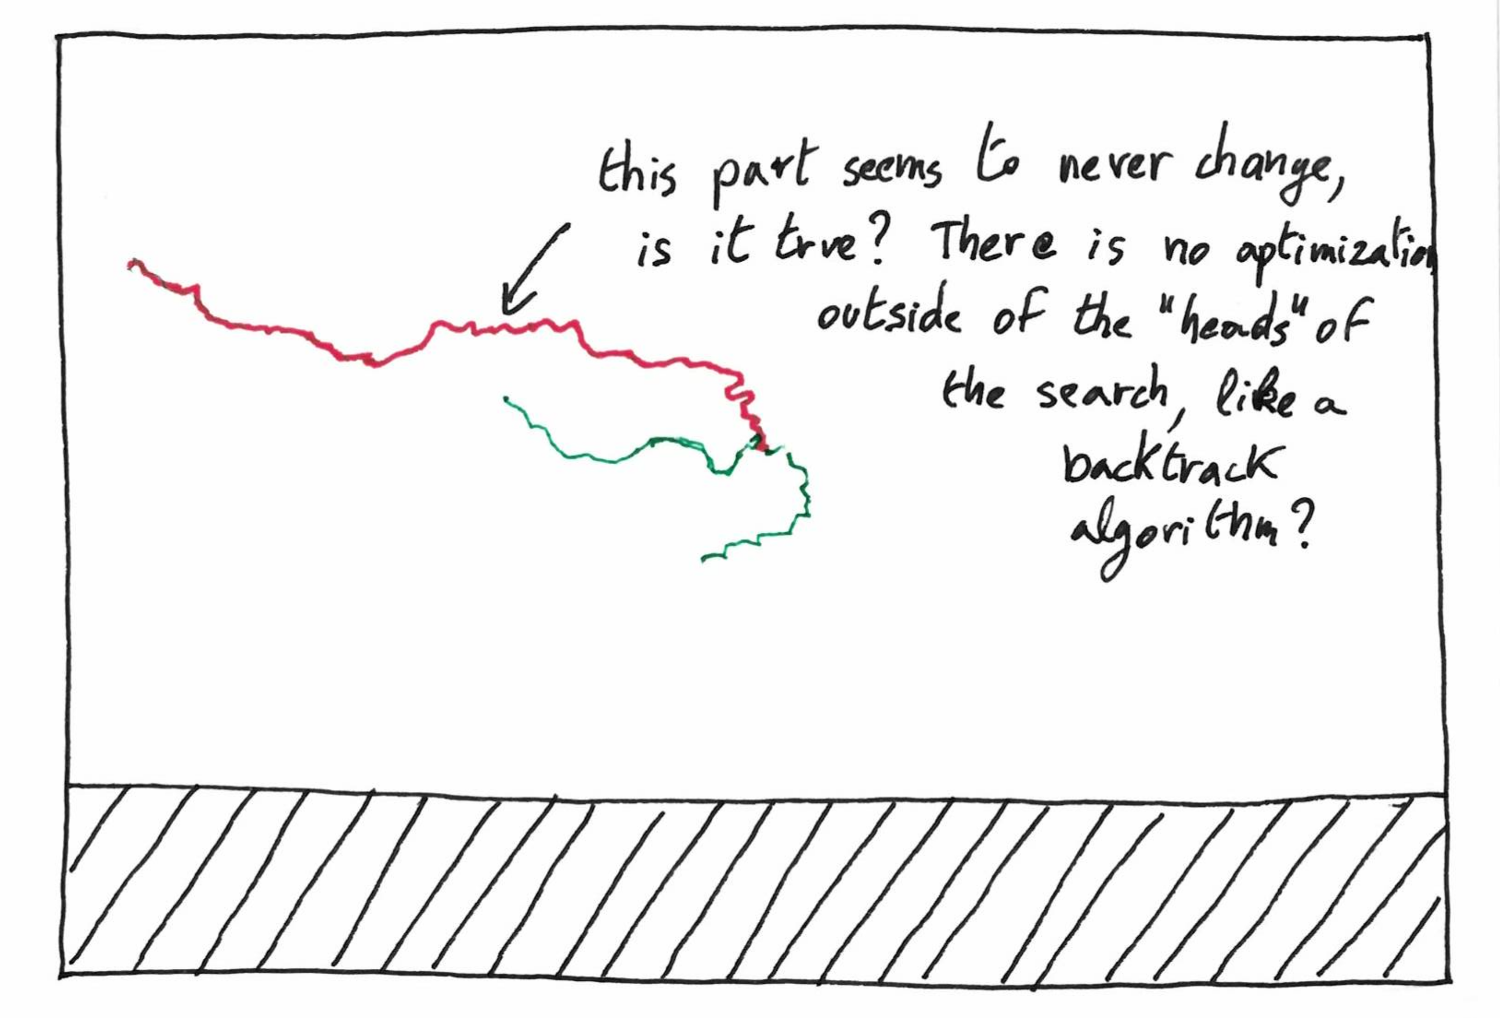 this part seems to never change,
is it true? There is no optimization
outside of the "heads" of
the search, like a
backtrack
algorithm?